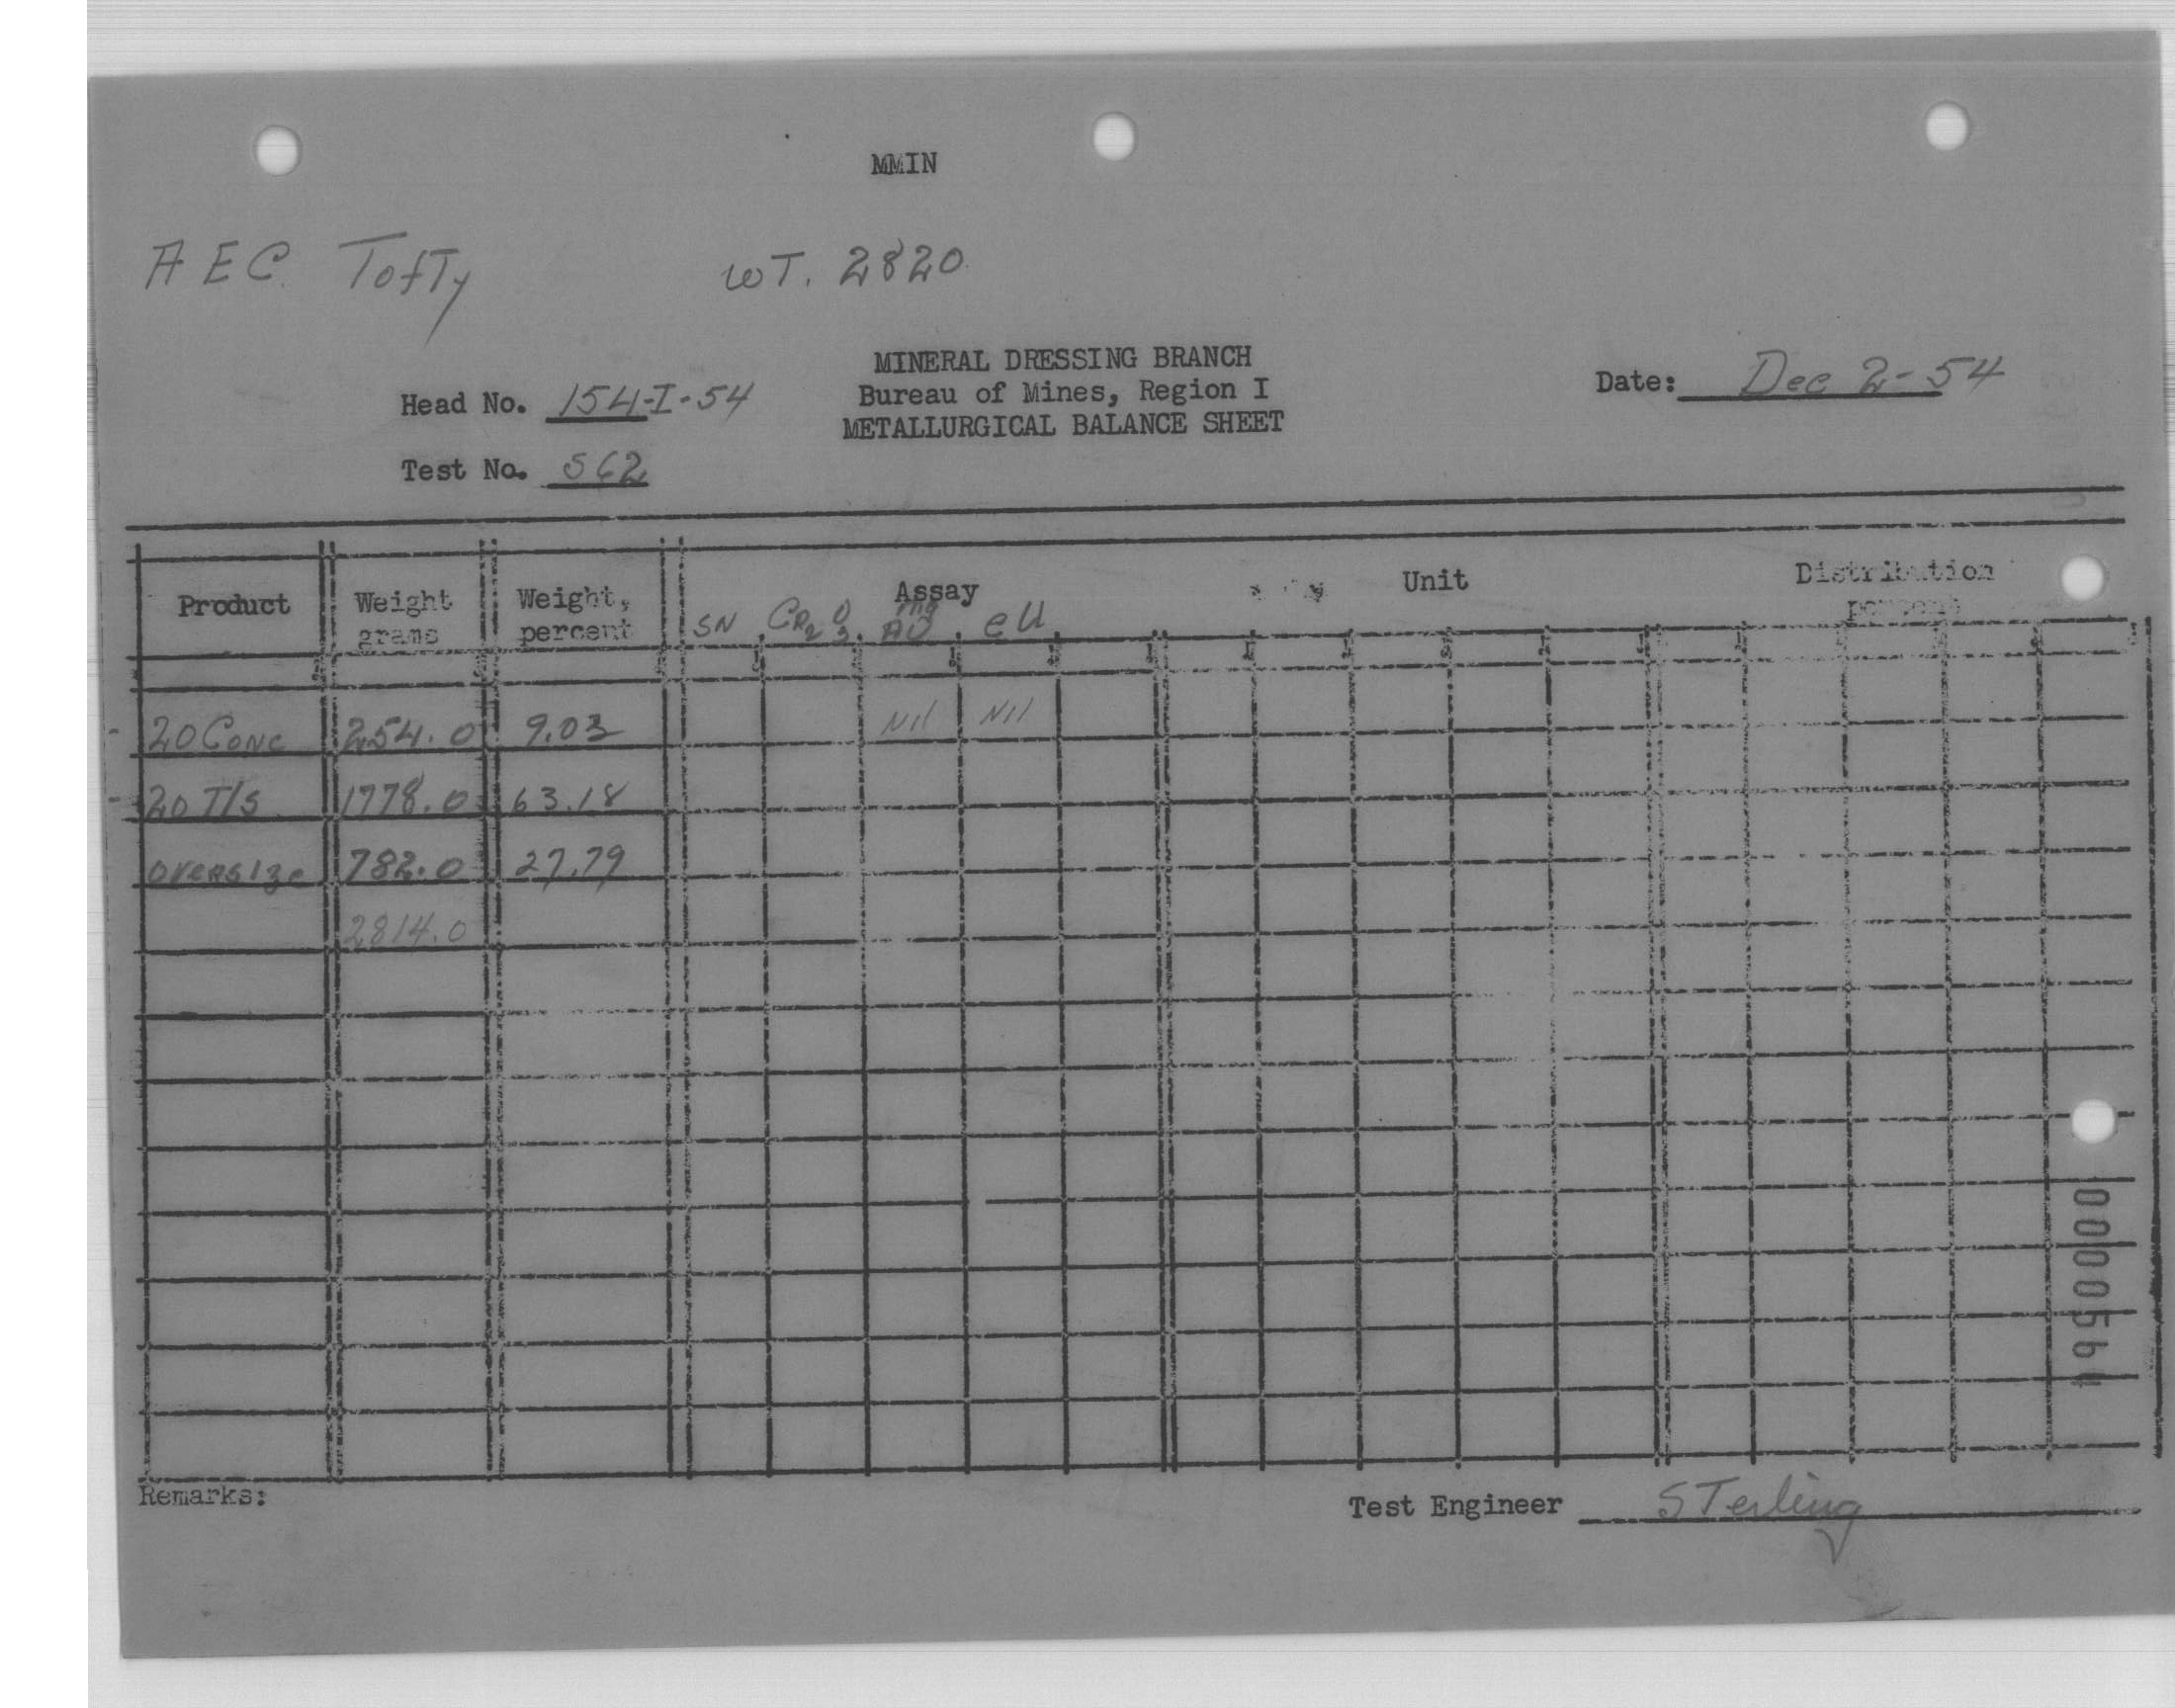 MMIN
AEC Tofty WT. 2820
MINERAL DRESSING BRANCH
Head No. 154-I-54 Bureau of Mines, Region I Date: Dec 2-54
METALLURGICAL BALANCE SHEET
Test No. S62
Product Weight grams Weight, percent Assay Unit Distribution percent
SN CR2O3 mg AU eU
-20 Conc 254.0 9.03 Nil Nil
-20 T/s 1778.0 63.18
oversize 782.0 27.79
2814.0
Remarks:
Test Engineer Sterling